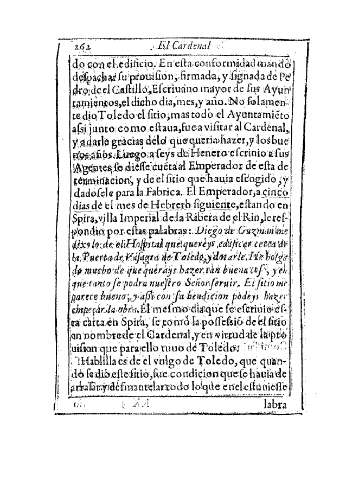 262 El Cardenal
do con el edificio. En esta conformidad mandò
despachar su prouision, firmada, y signada de Pe
dro de el Castillo, Escriuano mayor de sus Ayun
tamientos, el dicho dia, mes, y año. No solamen
te dio Toledo el sitio, mas todo el Ayuntamiẽto
assi junto como estaua, fue a visitar al Cardenal,
y a darle gracias de lo que queria hazer, y los bue
nos años. Luego a seys de Henero escriuio a sus
Agentes se diesse cuẽta al Emperador de esta de
terminacion, y de el sitio que hauia escogido, y
dadosele para la Fabrica. El Emperador, a cinco
dias de el mes de Hebrero siguiente, estando en
Spira, villa Imperial de la Ribera de el Rin, le res
pondio por estas palabras: Diego de Guzman me
dixo lo de el Hospital que quereys edificar cerca de
la Puerta de Visagra de Toledo, y donarle. He holga
do mucho de que querays hazer tan buena , y en
que tanto se podra nuestro Señor seruir. El sitio me
parece bueno, y assi con su bendicion podeys hazer
empeçar la obra. El mismo dia que se escriuio es
ta carta en Spira, se tomò la possessiõ de el sitio
en nombre de el Cardenal, y en virtud de la pro
uision que para ello tuuo de Toledo.
Hablilla es de el vulgo de Toledo, que quan
do se dio este sitio, fue condicion que se hauia de
arrasar y desmantelar todo lo que en el estuuiesse
labra